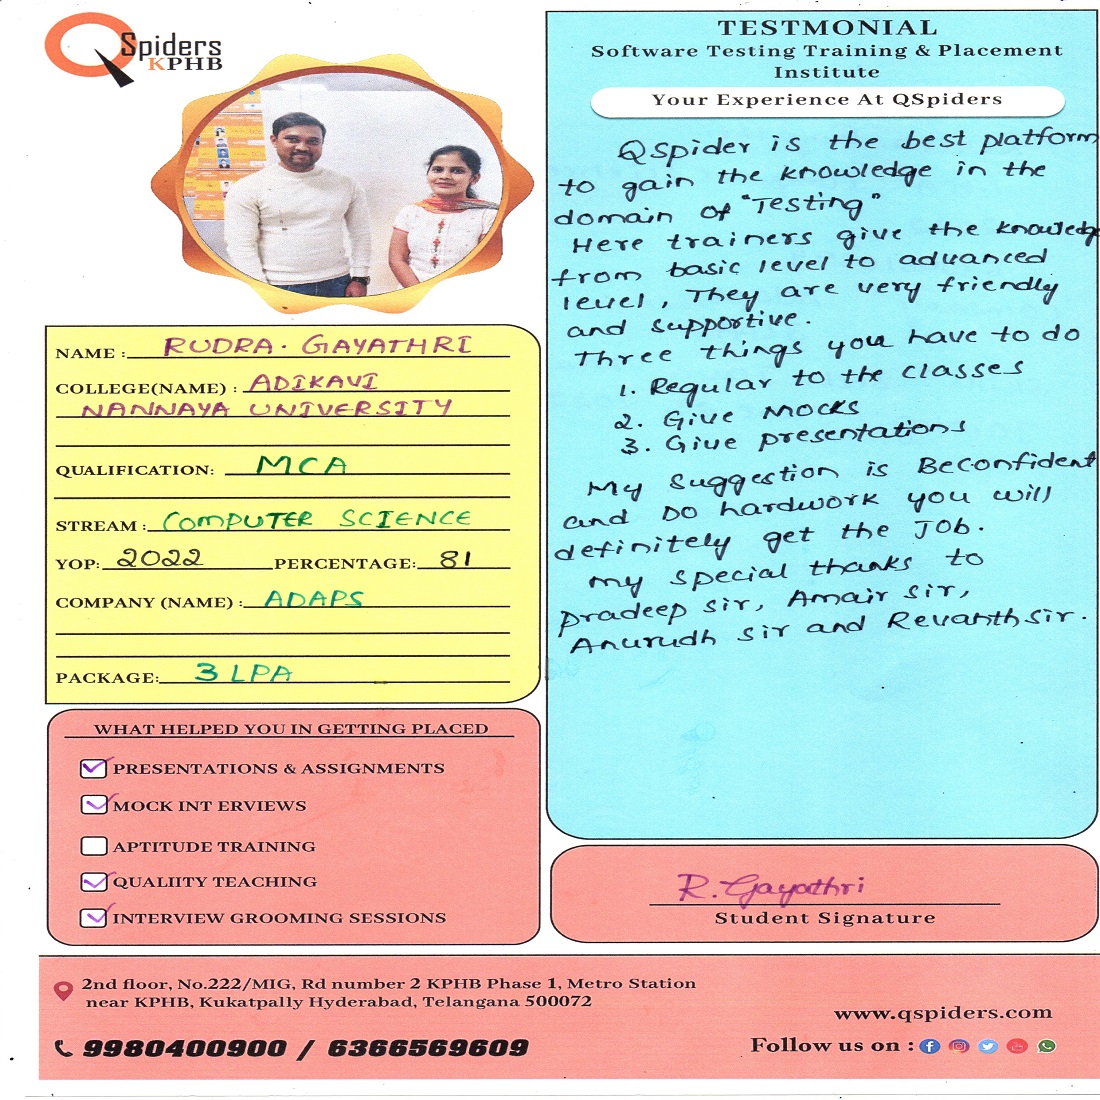 QSpiders
KPHB
TESTMONIAL
Software Testing Training & Placement
Institute
Your Experience At QSpiders
QSpider is the best platform
to gain the knowledge in the
domain of "Testing"
Here trainers give the knowledge
from basic level to advanced
level, They are very friendly
and supportive.
Three things you have to do
1. Regular to the classes
2. Give Mocks
3. Give presentations
My suggestion is Beconfident
and Do hardwork you will
definitely get the Job.
My special thanks to
Pradeep sir, Amair sir,
Anurudh sir and Revanth sir.
NAME : RUDRA. GAYATHRI
COLLEGE(NAME) : ADIKAVI
NANNAYA UNIVERSITY
QUALIFICATION: MCA
STREAM : COMPUTER SCIENCE
YOP: 2022 PERCENTAGE: 81
COMPANY (NAME) : ADAPS
PACKAGE: 3 LPA
WHAT HELPED YOU IN GETTING PLACED
PRESENTATIONS & ASSIGNMENTS
MOCK INT ERVIEWS
APTITUDE TRAINING
QUALIITY TEACHING
INTERVIEW GROOMING SESSIONS
R. Gayathri
Student Signature
2nd floor, No.222/MIG, Rd number 2 KPHB Phase 1, Metro Station
near KPHB, Kukatpally Hyderabad, Telangana 500072
9980400900 / 6366569609
www.qspiders.com
Follow us on :